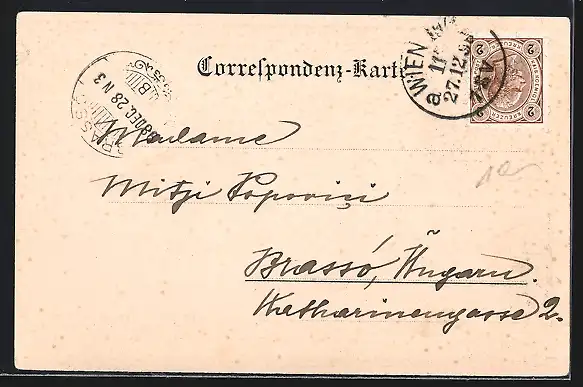 Correspondenz-Karte
WIEN
27.12.98
2 KREUZER 2
BRASSÓ
98 DEC. 28 N 3
Madame
Mitzi Popovici
Brassó, Ungarn.
Katharinengasse 2.